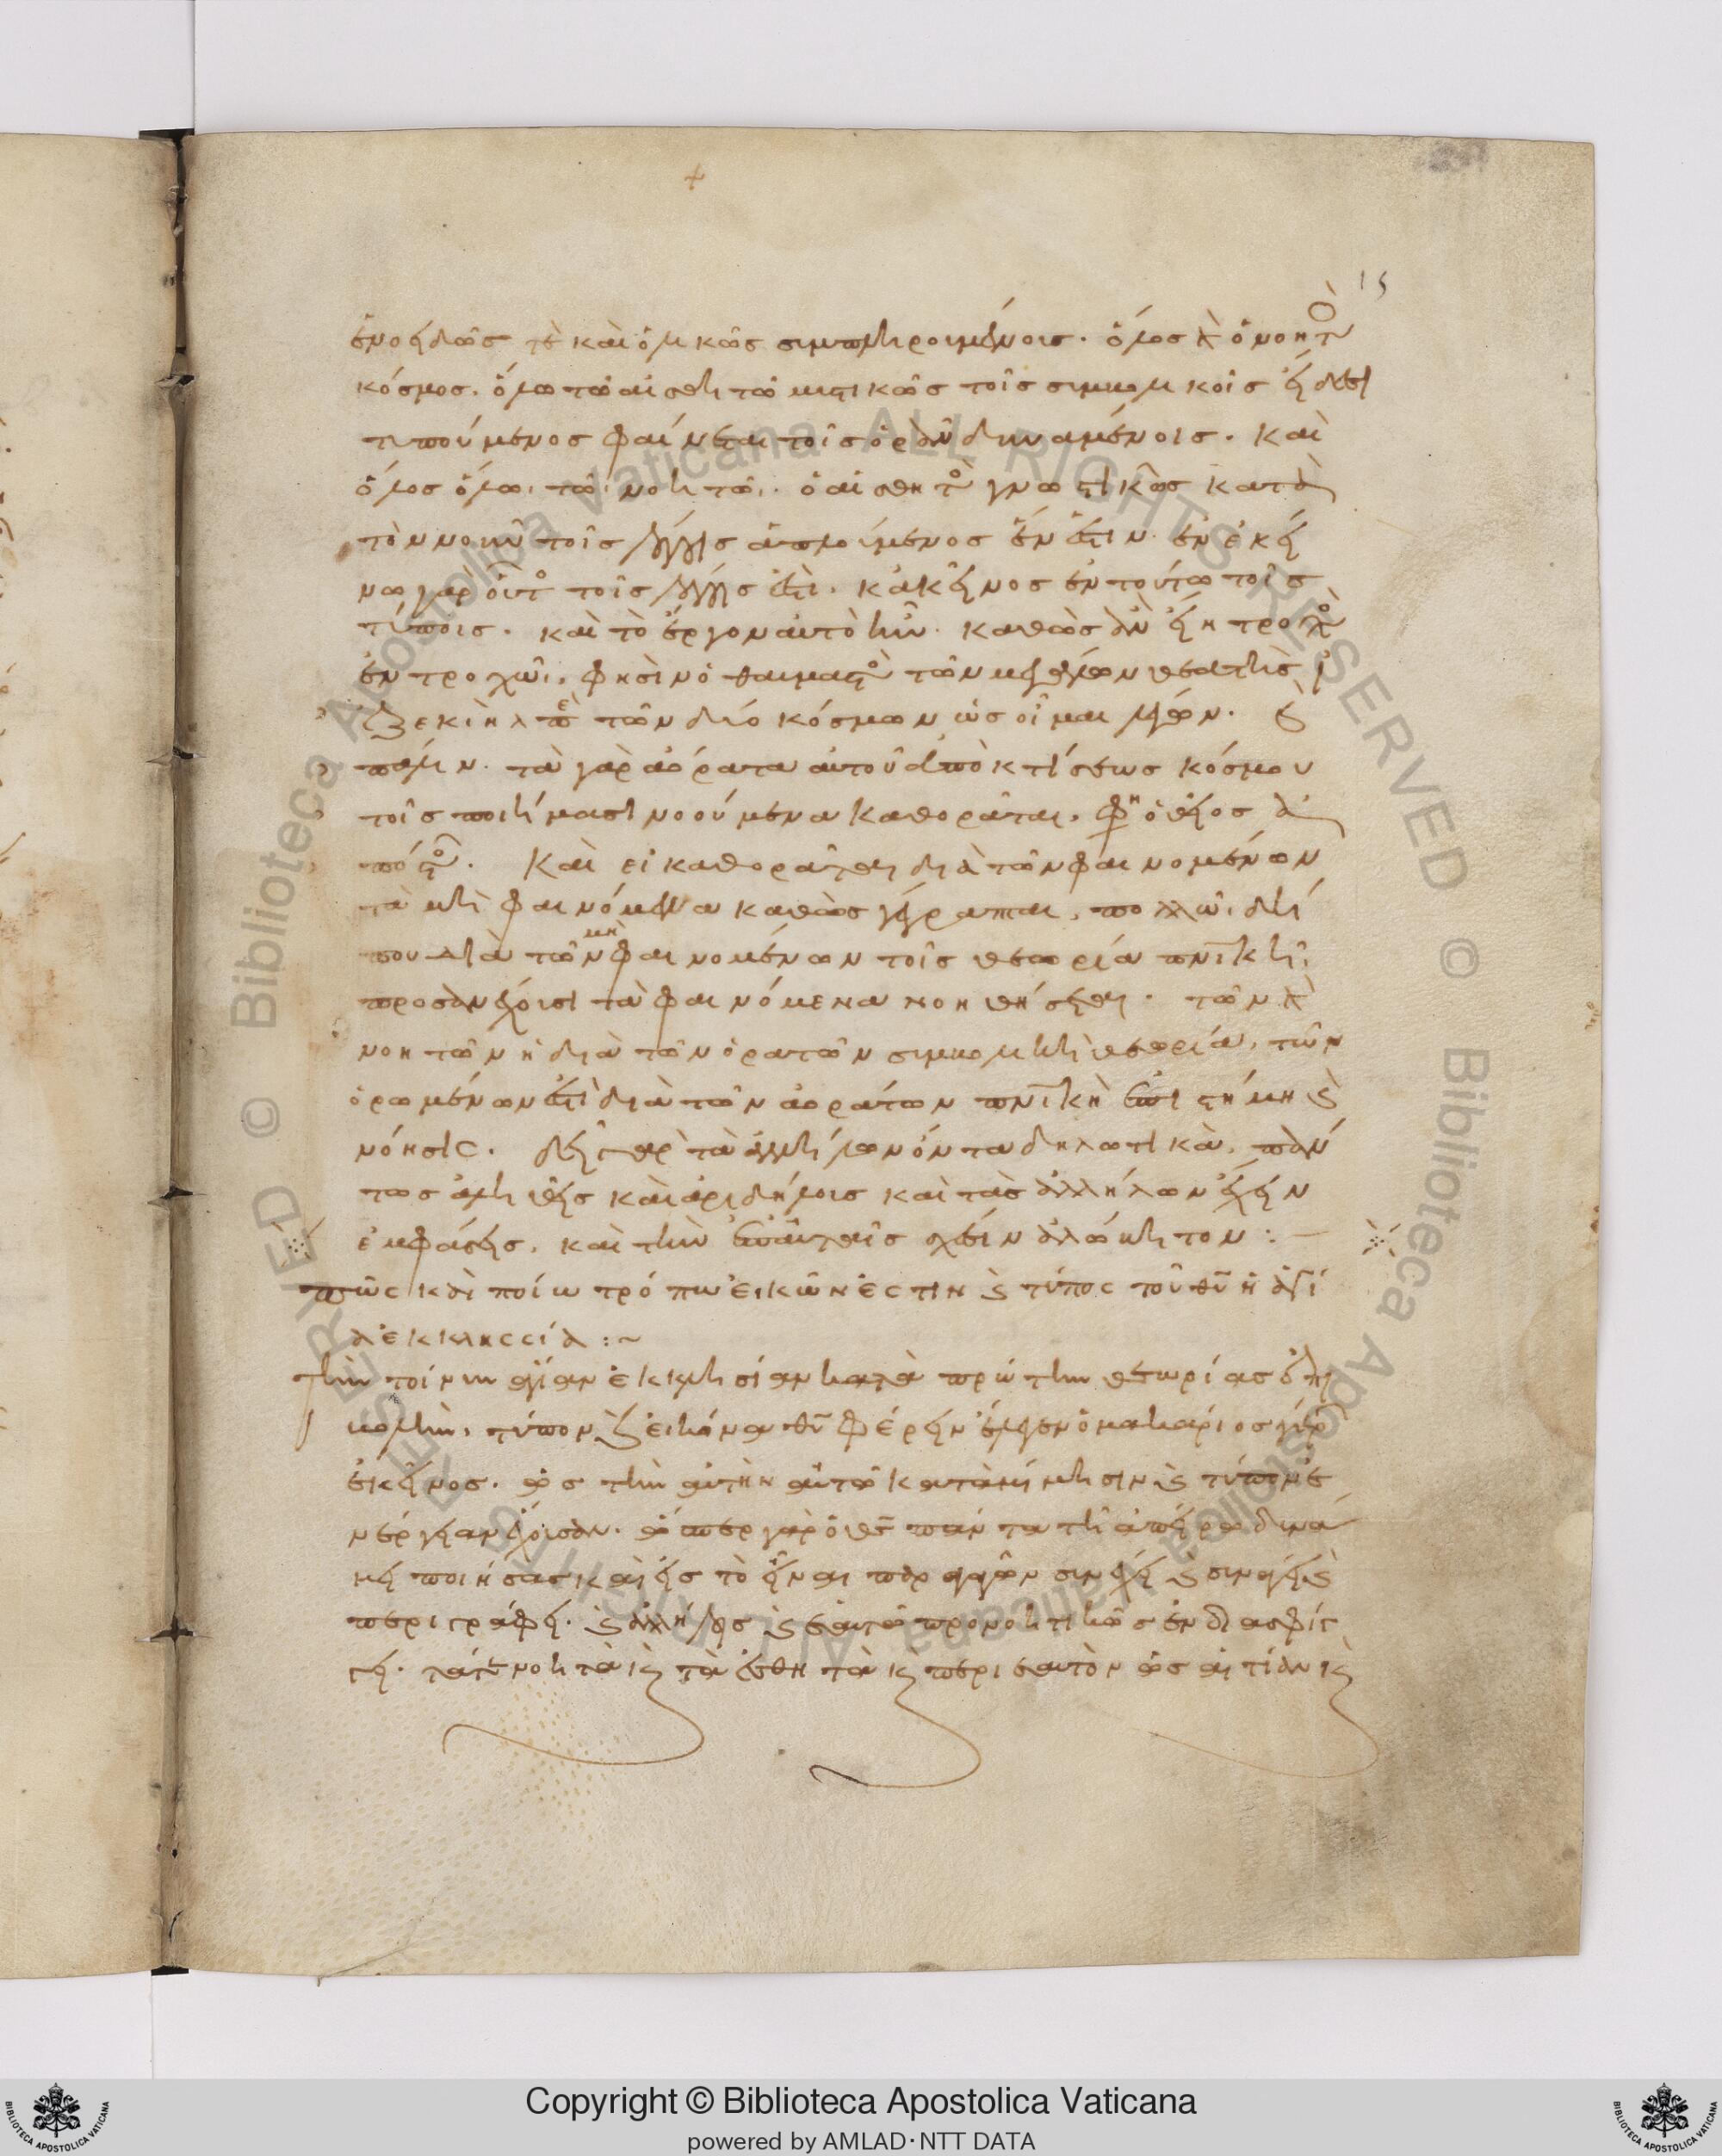 15
ἑνοειδῶς τε καὶ ὁλικῶς συμπληρουμένοις. ὅλος γὰρ ὁ νοητὸς
κόσμος. ὅλω τῶ αἰσθητῶ μυστικῶς τοῖς συμβολικοῖς εἴδεσι
τυπούμενος φαίνεται τοῖς ὁρᾶν δυναμένοις. καὶ
ὅλος ὅλω, τῶ, νοητῶ,. ὁ αἰσθητὸς γνωστικῶς κατὰ
τὸν νοῦν τοῖς λόγοις ἁπλούμενος ἔνεστιν. ἐν ἐκεί
νω γὰρ οὗτος τοῖς λόγοις ἐστὶ. κἀκεῖνος ἐν τούτω τοῖς
τύποις. καὶ τὸ ἔργον αὐτὸ ἦν. καθὼς ἂν εἴη τροχὸς
ἐν τροχῶ, φησὶν ὁ θαυμαστὸς τῶν μεγάλων θεατὴς ἰ
εζεκιὴλ περὶ τῶν δύο κόσμων ὡς οἶμαι λέγων. καὶ
πάλιν. τὰ γὰρ ἀόρατα αὐτοῦ ἀπὸ κτίσεως κόσμου
τοῖς ποιήμασι νοούμενα καθορᾶται, φησὶν ὁ θεῖος ἀ
πόστολος. Καὶ εἰ καθορᾶται διὰ τῶν φαινομένων
τὰ μὴ φαινόμενα καθὼς γέγραπται, πολλῶ, δή
που διὰ τῶν μὴ φαινομένων τοῖς θεωρία πνικῆ,
προσανέχουσι τὰ φαινόμενα νοηθήσεται. τῶν γὰρ
νοητῶν ἡ διὰ τῶν ὁρατῶν συμβολικὴ θεωρία, τῶν
ὁρωμένων ἐστὶ διὰ τῶν ἀοράτων πνικὴ ἐπιστήμη καὶ
νόησις. δεῖ γὰρ τὰ ἀλλήλων ὄντα δηλωτικὰ, πάν
τως ἀληθεῖς καὶ ἀριδήλους καὶ τὰς ἀλλήλων ἔχειν
ἐμφάσεις, καὶ τὴν ἐπ' αὐταῖς σχέσιν ἀλώβητον :—
πῶς καὶ ποίω τρόπω εἰκών ἐστιν καὶ τύπος τοῦ θῦ ἡ ἁγί
α ἐκκλησσία :~
Τὴν τοίνυν ἁγίαν ἐκκλησίαν κατὰ πρώτην θεωρίας ἐπι
βολὴν, τύπον καὶ εἰκόνα θῦ φέρειν ἔλεγεν ὁ μακάριος γέρων
ἐκεῖνος. ὡς τὴν αὐτὴν αὐτῶ κατὰ μίμησιν καὶ τύπον ἐ
νέργειαν ἔχουσαν. ὥσπερ γὰρ ὁ θς πάντα τῆ ἀπείρω δυνά
μει ποιήσας καὶ εἰς τὸ εἶναι παραγαγὼν συνέχει καὶ συνάγει καὶ
περιγράφει. καὶ ἀλλήλοις καὶ ἑαυτῶ προνοητικῶς ἐνδιασφίγ
γει. τάτε νοητὰ καὶ τὰ αἰσθητὰ καὶ περὶ ἑαυτὸν ὡς αἰτίαν καὶ
Copyright © Biblioteca Apostolica Vaticana
powered by AMLAD·NTT DATA